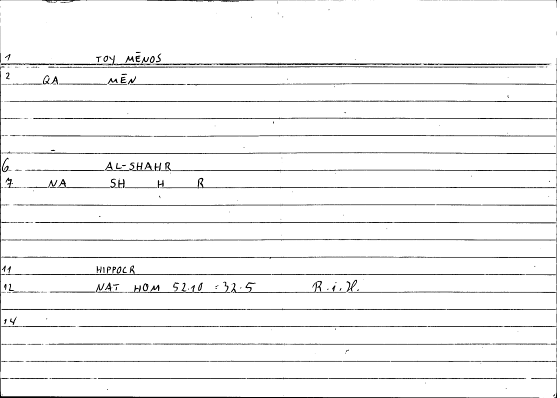 1 TOY MĒNOS
2 QA MĒN
6 AL-SHAHR
7 NA SH H R
11 HIPPOCR
12 NAT HOM 52.10 = 32.5 R.i.H.
14